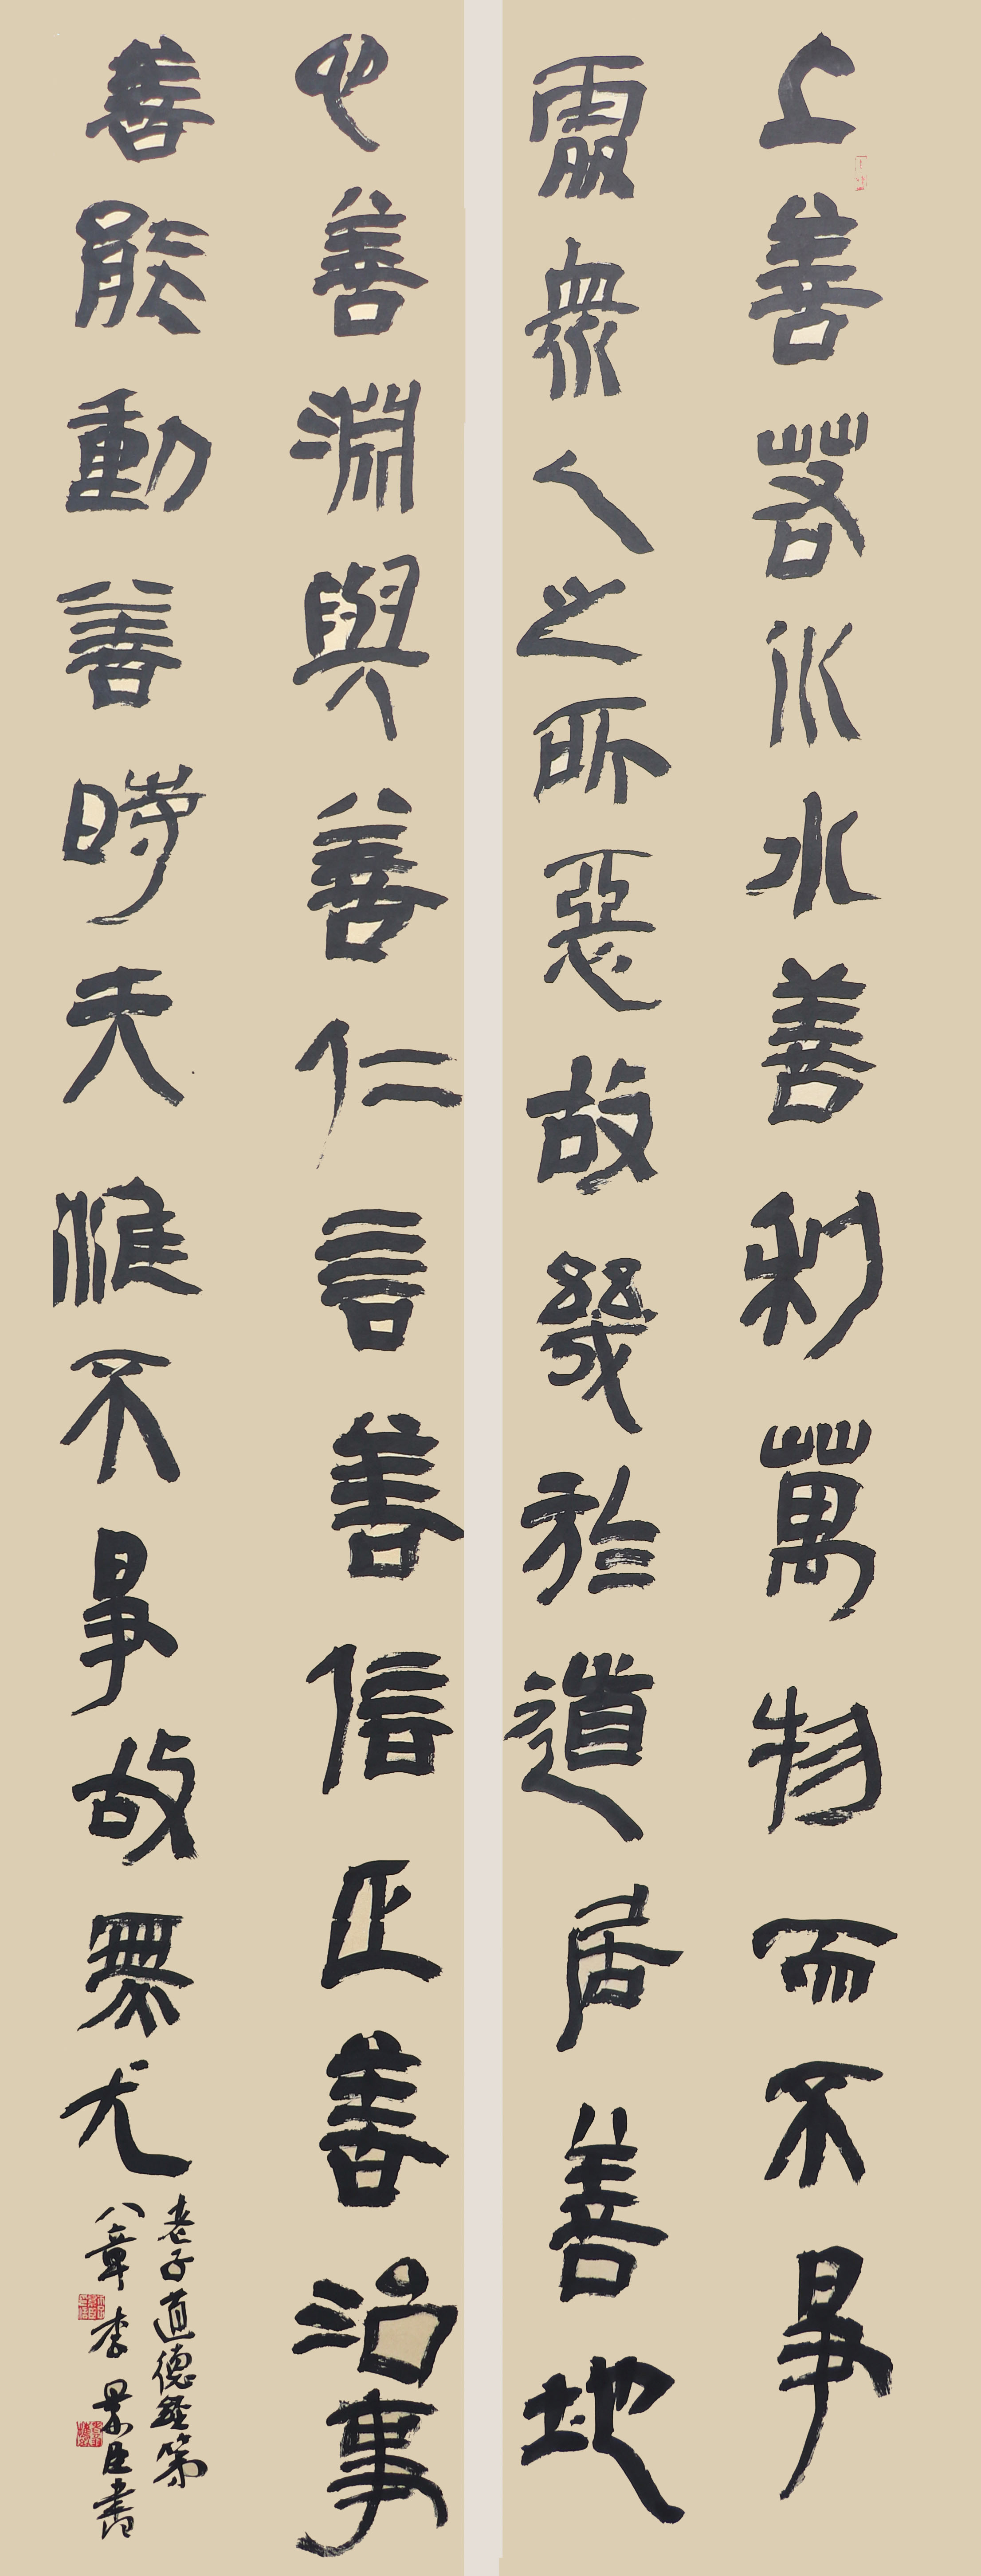 上善若水水善利萬物而不爭
處眾人之所惡故幾於道居善地
心善淵與善仁言善信正善治事
善能動善時夫惟不爭故無尤
老子道德經第
八章李景臣書